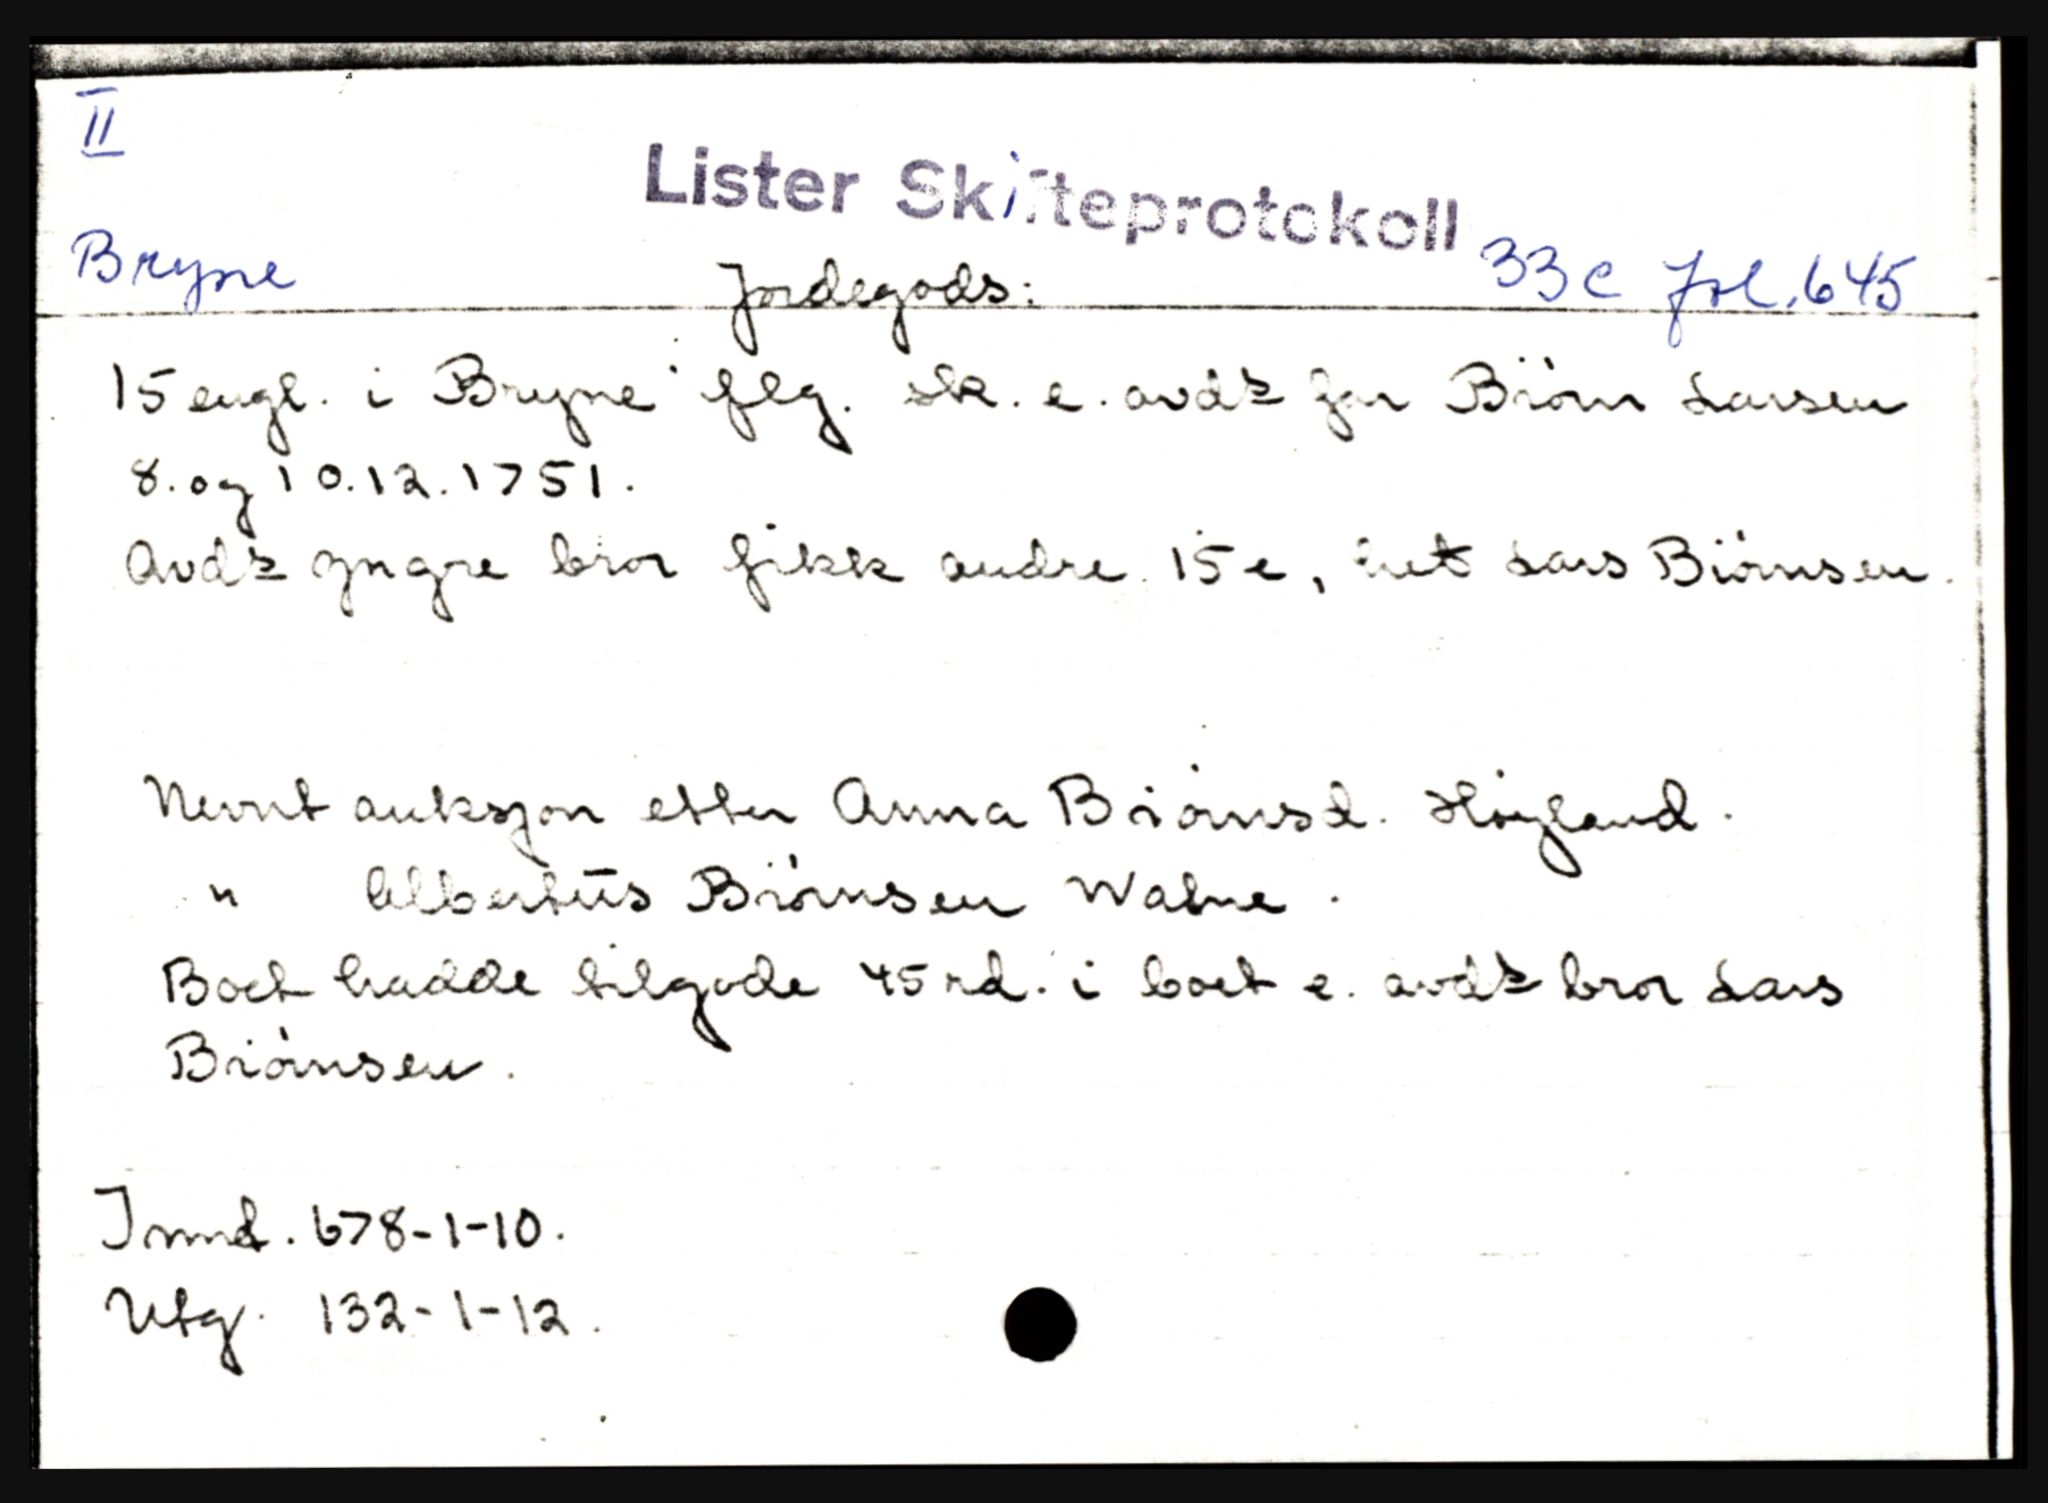 II
Lister Skifteprotokoll
Bryne
Jordegods:
33c fol. 645
15 engl. i Bryne flg. sk. e. avdø far Biørn Larsen
8. og 10.12.1751.
Avdø yngre bror fikk andre 15 e, het Lars Biørnsen.
Nevnt auksjon etter Anna Biørnsd. Høyland.
" Albertus Biørnsen Watne.
Boet hadde tilgode 45 rd. i boet e. avdø bror Lars
Biørnsen.
Innd. 678-1-10.
Utg. 132-1-12.